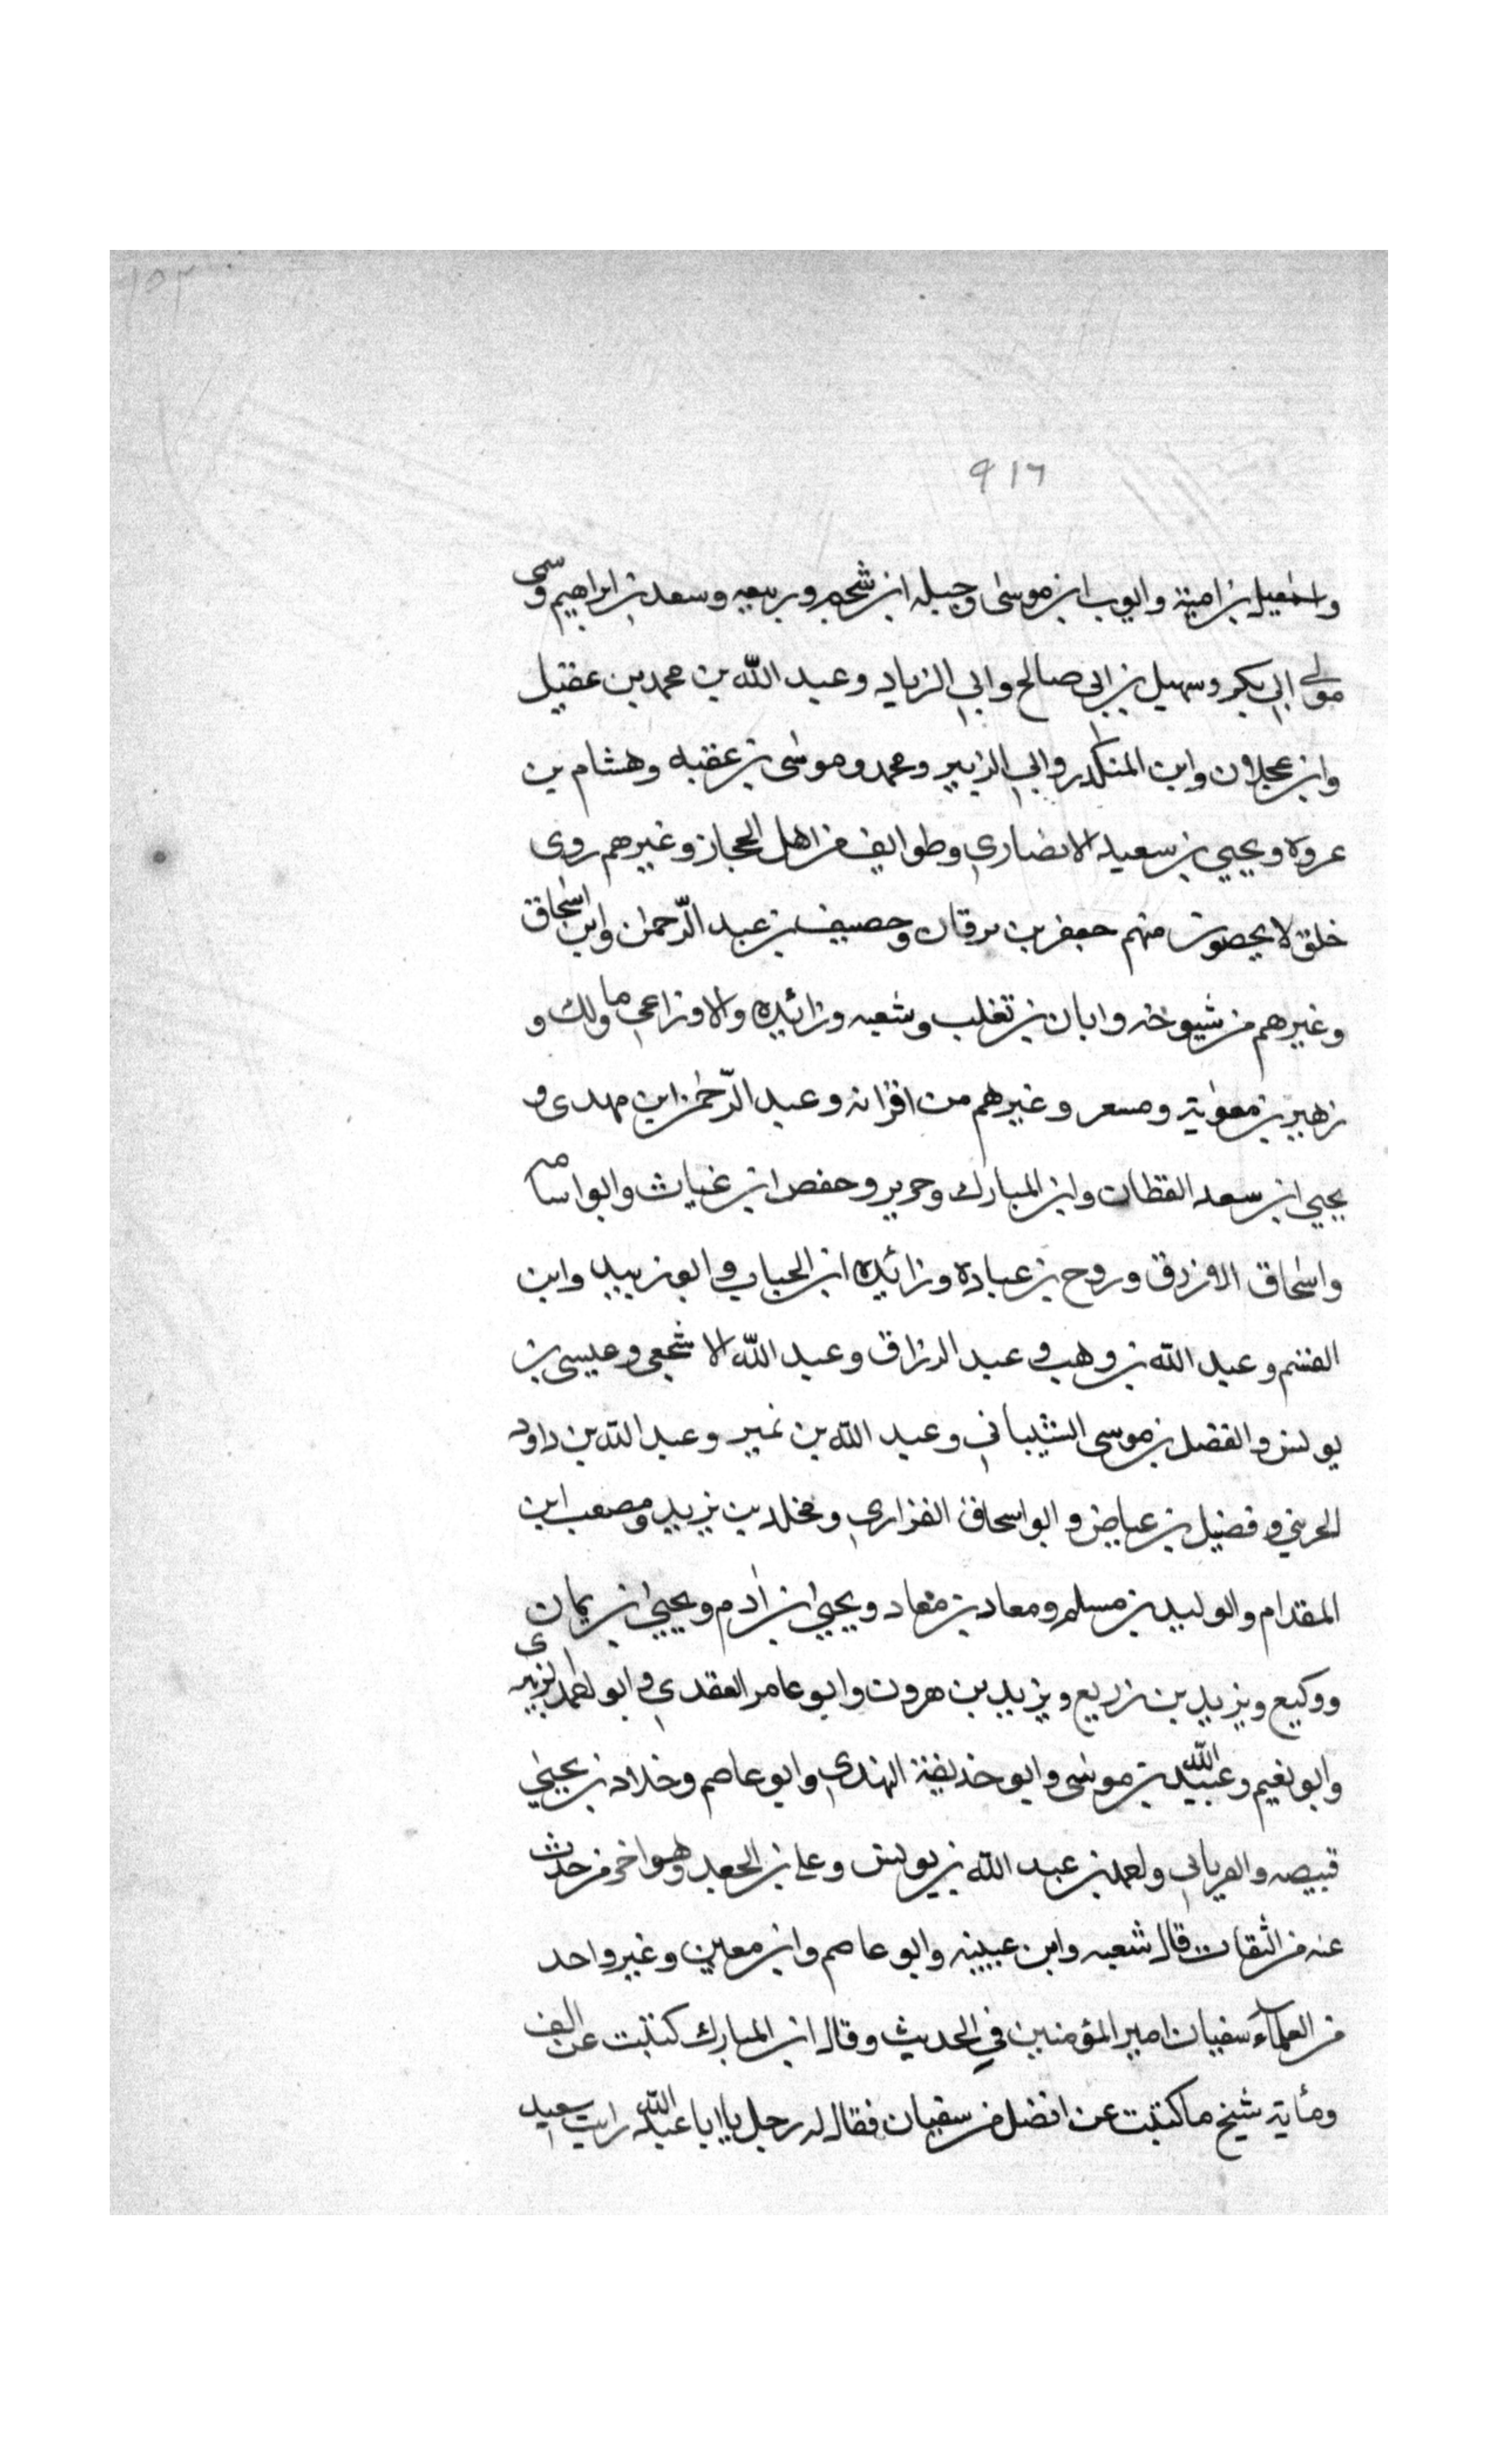 ١٥٢
٩١٦
واسمعيل بن امية وايوب ابن موسى وجبله ابن شحيم وربيعه وسعد بن ابراهيم وسمى
مولى ابى بكر وسهيل بن ابى صالح وابى الزياد وعبد الله بن محمد بن عقيل
وابن عجلان وابن المنكدر وابى الزبير ومحمد وموسى بن عقبه وهشام بن
عروة ويحيى بن سعيد الانصارى وطوايف من اهل الحجاز وغيرهم روى
خلق لا يحصون منهم جعفر بن برقان وحصيف بن عبد الرّحمان وابن اسحاق
وغيرهم من شيوخه وابان بن تغلب وشعبه وزائدة والاوزاعى ومالك و
زهير بن معوية ومسعر وغيرهم من اقرانه وعبد الرّحمن ابن مهدى و
يحيى ابن سعد القطان وابن المبارك وجرير وحفص ابن غياث وابو اسامه
واسحاق الازرق وروح بن عبادة وزائدة ابن الحباب وابو زبيد وابن
القسم وعبد الله بن وهب وعبد الرزاق وعبد الله الاشجعى وعيسى بن
يونس والفضل بن موسى الشيبانى وعبد الله بن نمير وعبد الله بن داود
الحربى وفضيل بن عياض وابو اسحاق الفزارى ومخلد بن يزيد ومصعب ابن
المقدام والوليد بن مسلم ومعاد بن معاد ويحيى ابن ادم ويحيى ابن يمان
ووكيع ويزيد بن زريع ويزيد بن هرون وابو عامر العقدى وابو احمد الزبيرى
وابو نعيم وعبيد الله بن موسى وابو حذيفة النهدى وابو عاصم وخلاد بن يحيى
قبيصه والفريابى واحمد بن عبد الله بن يونس وعلى بن الجعد وهو اخر من حدث
عنه من الثقات قال شعبه وابن عيينه وابو عاصم وابن معين وغير واحد
من العلماء سفيان امير المؤمنين فى الحديث وقال ابن المبارك كتبت عن الف
ومأية شيخ ما كتبت عن افضل من سفيان فقال له رجل يا ابا عبد الله رايت سعيد